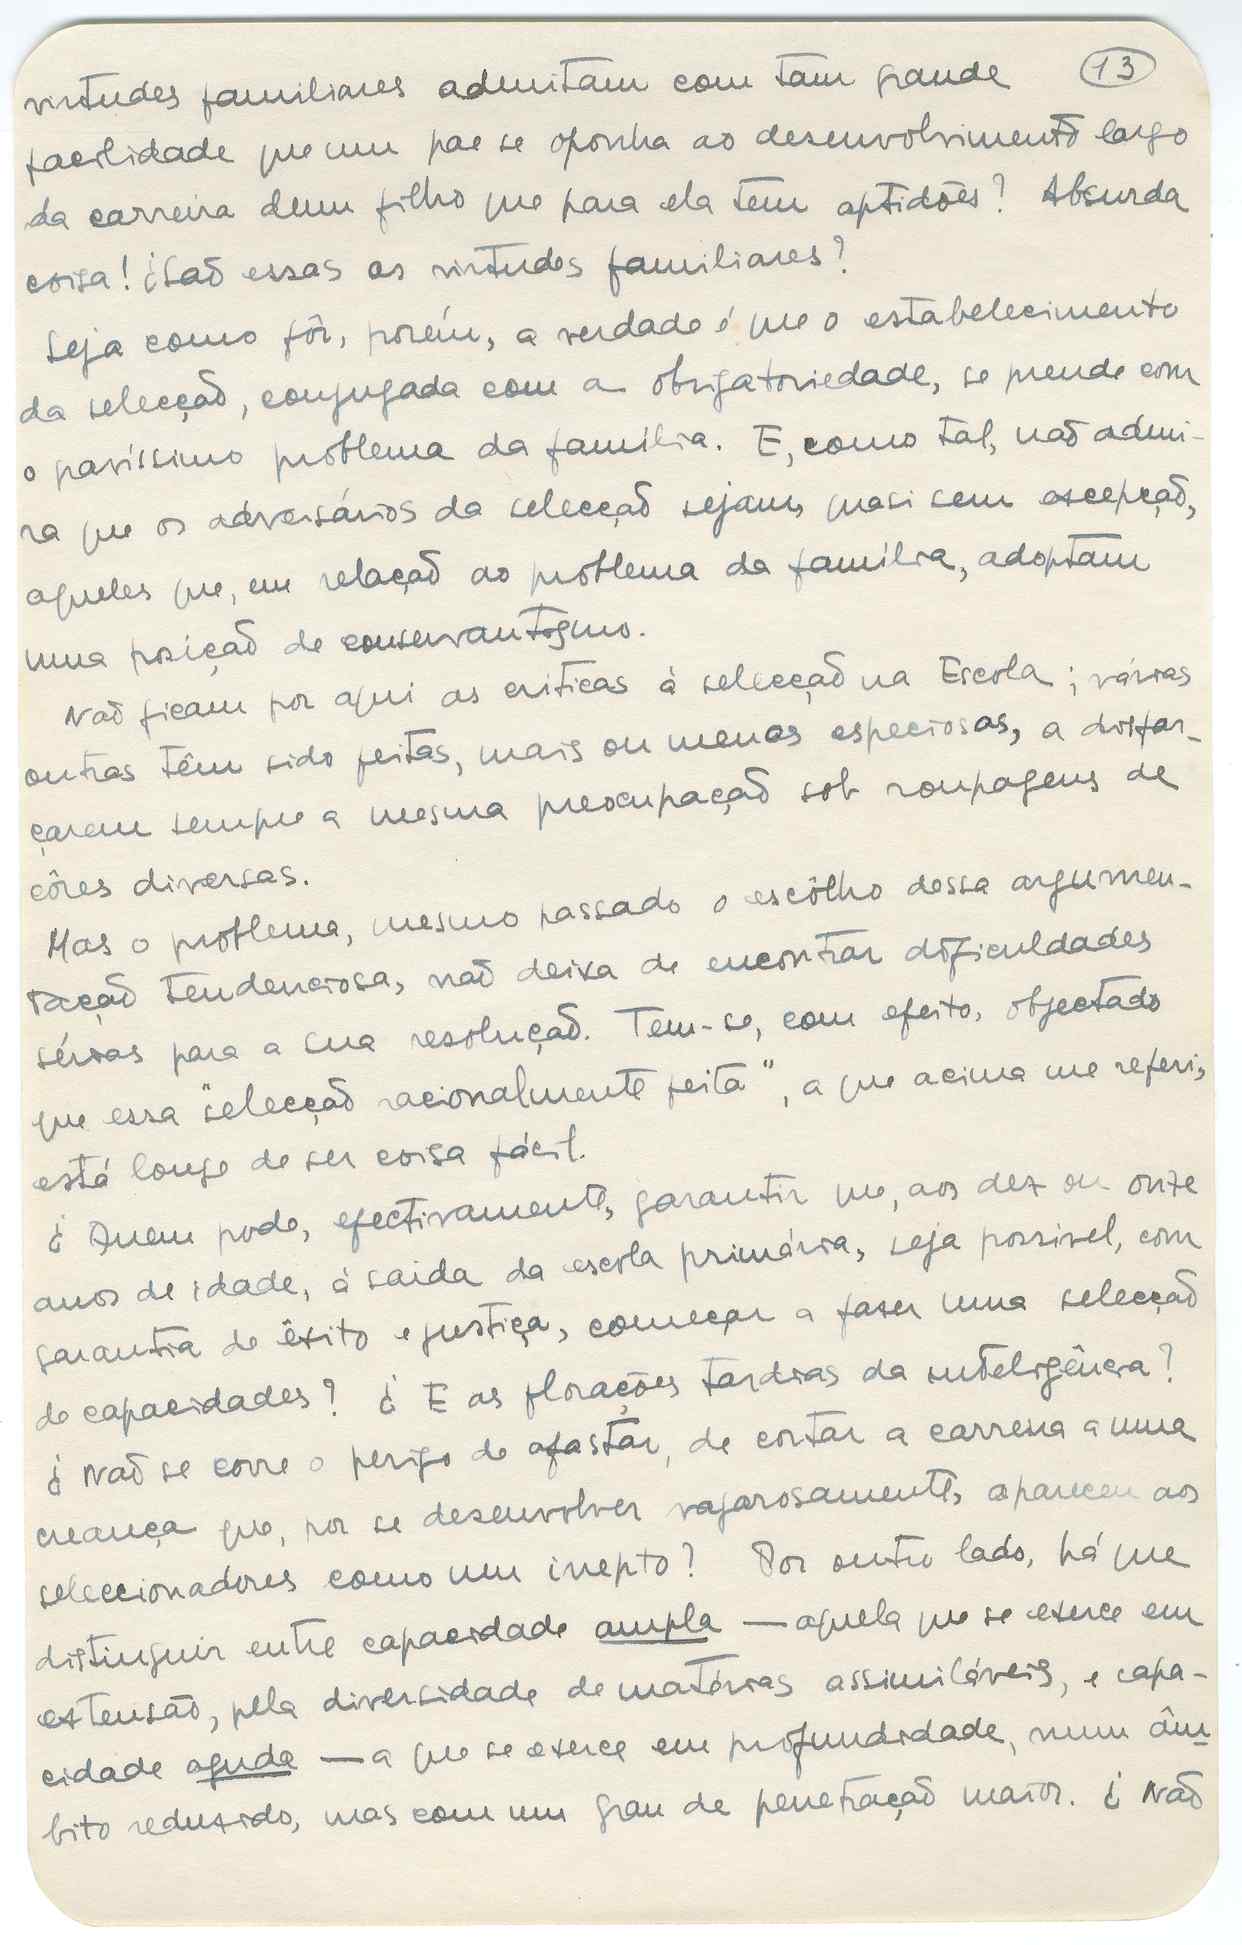 virtudes familiares admitam com tam grande (13)
facilidade que um pae se oponha ao desenvolvimento largo
da carreira dum filho que para ela tem aptidões? Absurda
coisa! ¿São essas as virtudes familiares?
Seja como fôr, porém, a verdade é que o estabelecimento
da selecção, conjugada com a obrigatoriedade, se prende com
o gravíssimo problema da família. E, como tal, não admi-
ra que os adversários da selecção sejam, quasi sem excepção,
aqueles que, em relação ao problema da família, adoptam
uma posição de conservantismo.
Não ficam por aqui as críticas à selecção na Escola; várias
outras têm sido feitas, mais ou menos especiosas, a disfar-
çarem sempre a mesma preocupação sob roupagens de
côres diversas.
Mas o problema, mesmo passado o escôlho dessa argumen-
tação tendenciosa, não deixa de encontrar dificuldades
sérias para a sua resolução. Tem-se, com efeito, objectado
que essa "selecção racionalmente feita", a que acima me referi,
está longe de ser coisa fácil.
¿ Quem pode, efectivamente, garantir que, aos dez ou onze
anos de idade, à saida da escola primária, seja possivel, com
garantia de êxito e justiça, começar a fazer uma selecção
de capacidades? ¿ E as florações tardias da inteligência?
¿ Não se corre o perigo de afastar, de cortar a carreira a uma
creança que, por se desenvolver vagarosamente, apareceu aos
seleccionadores como um inepto? Por outro lado, há que
distinguir entre capacidade ampla — aquela que se exerce em
extensão, pela diversidade de matérias assimiláveis, e capa-
cidade aguda — a que se exerce em profundidade, num âm-
bito reduzido, mas com um grau de penetração maior. ¿ Não